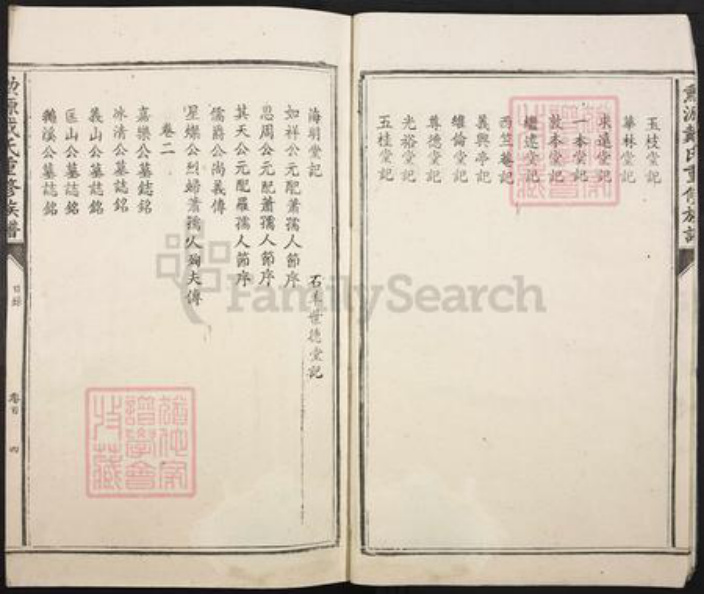 玉枝堂記
華林堂記
求遠堂記
一本堂記
敦本堂記
繼述堂記
西竺菴記
義興亭記
維倫堂記
尊德堂記
光裕堂記
五桂堂記
海明堂記
石羊世德堂記
如祥公元配蕭孺人節序
忍周公元配蕭孺人節序
其天公元配羅孺人節序
儒爵公尚義傳
星燦公烈婦蕭孺人殉夫傳
卷二
嘉樂公墓誌銘
冰清公墓誌銘
義山公墓誌銘
匡山公墓誌銘
鵝溪公墓誌銘
戴氏重修族譜
目錄
卷首
四
FamilySearch